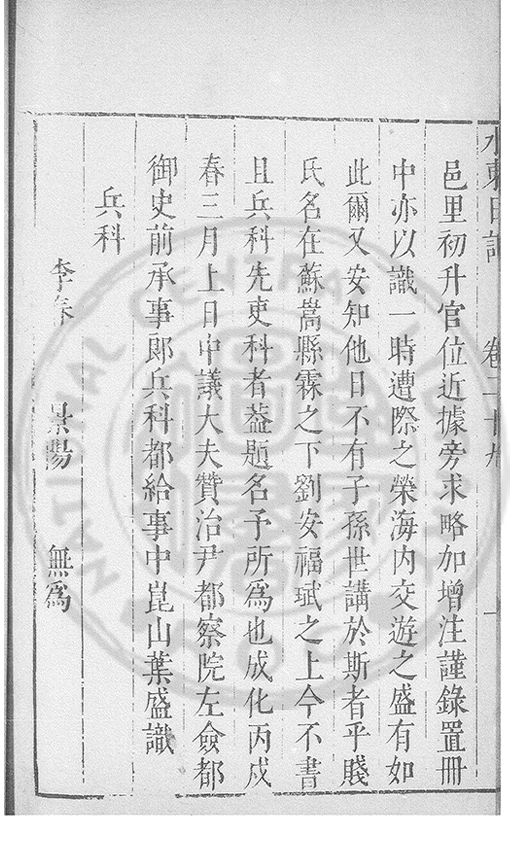 水東日記 卷二十九
邑里初升官位近據旁求略加增注謹錄置冊
中亦以識一時遭際之榮海內交遊之盛有如
此爾又安知他日不有子孫世講於斯者乎賤
氏名在蘇嵩縣霖之下劉安福珷之上今不書
且兵科先吏科者葢題名予所為也成化丙戍
春三月上日中議大夫贊治尹都察院左僉都
御史前承事郎兵科都給事中崑山葉盛識
兵科
李春 景暘 無為